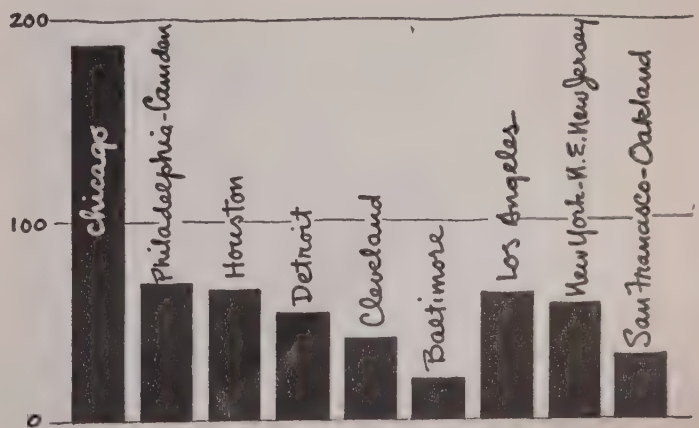 200
100
0
Chicago
Philadelphia-Camden
Houston
Detroit
Cleveland
Baltimore
Los Angeles
New York-N.E. New Jersey
San Francisco-Oakland